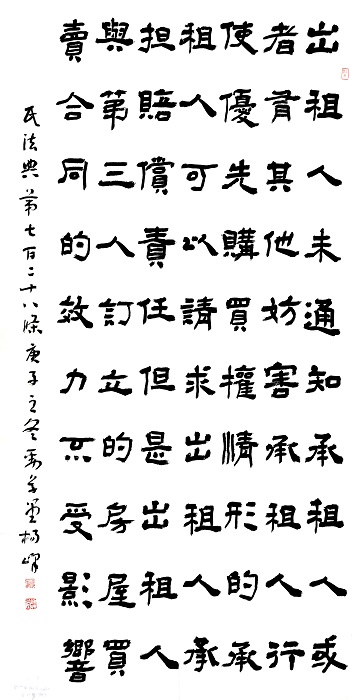 出租人未通知承租人或
者有其他妨害承租人行
使優先購買權情形的承
租人可以請求出租人承
担賠償責任但是出租人
與第三人訂立的房屋買
賣合同的效力不受影響
民法典第七百二十八條庚子立冬